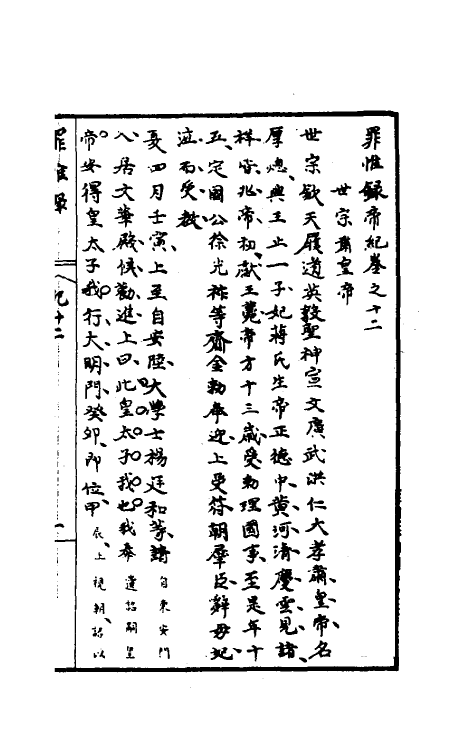 罪惟錄帝紀卷之十二
世宗肅皇帝
世宗欽天履道英毅聖神宣文廣武洪仁大孝肅皇帝名
厚熜興王止一子妃蔣氏生帝正德中黃河清慶雲見諸
祥皆兆帝初獻王薨帝方十三歲受勅理國事至是年十
五定國公徐光祚等齎金勅奉迎上受符朝羣臣辭母妃
泣而受教
夏四月壬寅上至自安陸大學士楊廷和等請自東安門
入居文華殿候勸進上曰此皇太子我也我奉遺詔嗣皇
帝安得皇太子我行大明門癸卯即位甲辰上視朝詔以
罪惟錄
紀十二
一